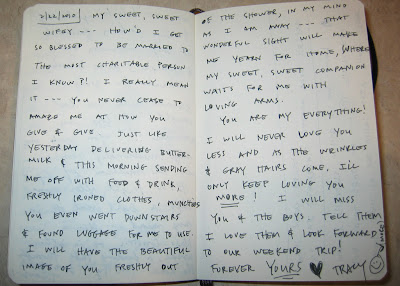 2/22/2010 MY SWEET, SWEET
WIFEY --- HOW'D I GET
SO BLESSED TO BE MARRIED TO
THE MOST CHARITABLE PERSON
I KNOW?! I REALLY MEAN
IT --- YOU NEVER CEASE TO
AMAZE ME AT HOW YOU
GIVE & GIVE. JUST LIKE
YESTERDAY DELIVERING BUTTER-
MILK & THIS MORNING SENDING
ME OFF WITH FOOD & DRINK,
FRESHLY IRONED CLOTHES, MUNCHIES
YOU EVEN WENT DOWNSTAIRS
& FOUND LUGGAGE FOR ME TO USE.
I WILL HAVE THE BEAUTIFUL
IMAGE OF YOU FRESHLY OUT
OF THE SHOWER, IN MY MIND
AS I AM AWAY --- THAT
WONDERFUL SIGHT WILL MAKE
ME YEARN FOR HOME, WHERE
MY SWEET, SWEET COMPANION
WAITS FOR ME WITH
LOVING ARMS.
YOU ARE MY EVERYTHING!
I WILL NEVER LOVE YOU
LESS AND AS THE WRINKLES
& GRAY HAIRS COME, I'LL
ONLY KEEP LOVING YOU
MORE! I WILL MISS
YOU & THE BOYS. TELL THEM
I LOVE THEM & LOOK FORWARD
TO OUR WEEKEND TRIP!
FOREVER YOURS TRACY